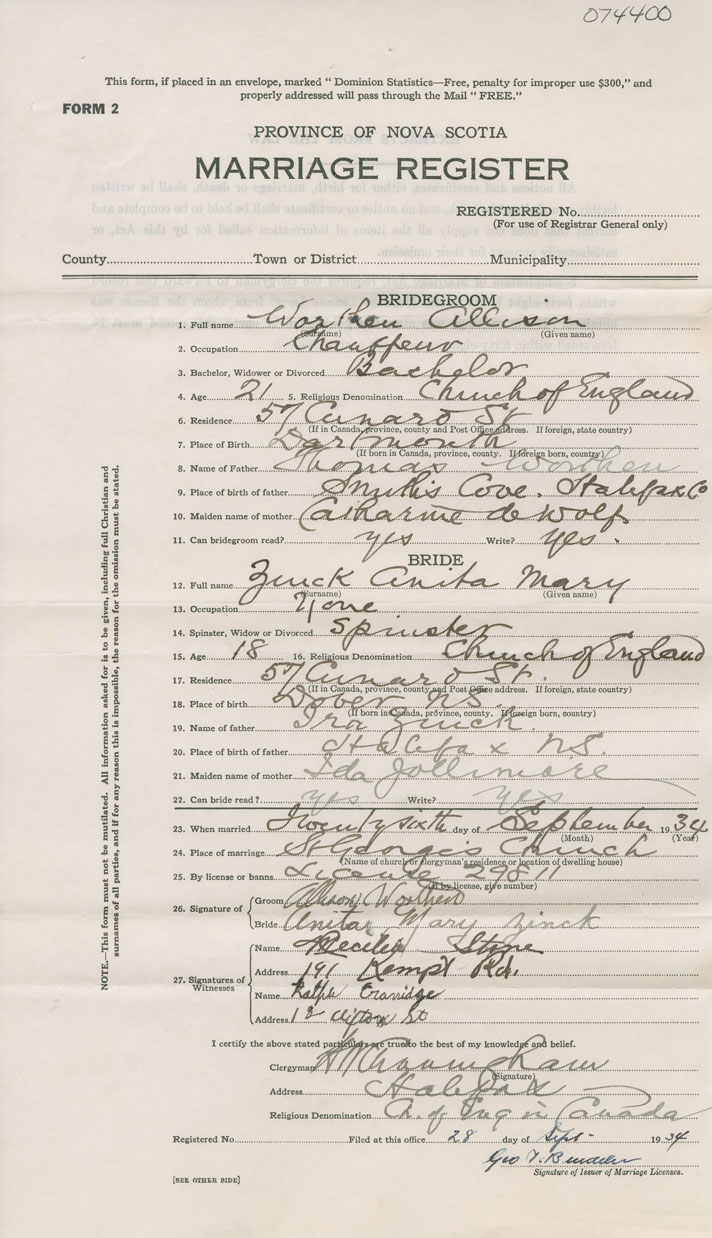 074400
This form, if placed in an envelope, marked " Dominion Statistics—Free, penalty for improper use $300," and
properly addressed will pass through the Mail " FREE."
FORM 2
PROVINCE OF NOVA SCOTIA
MARRIAGE REGISTER
REGISTERED No.
(For use of Registrar General only)
County Town or District Municipality
BRIDEGROOM
1. Full name Worthen Allison
(Surname) (Given name)
2. Occupation Chauffeur
3. Bachelor, Widower or Divorced Bachelor
4. Age 21 5. Religious Denomination Church of England
6. Residence 57 Cunard St.
(If in Canada, province, county and Post Office address. If foreign, state country)
7. Place of Birth Dartmouth
(If born in Canada, province, county. If foreign born, country)
8. Name of Father Thomas Worthen
9. Place of birth of father Smith's Cove. Halifax Co
10. Maiden name of mother Catharine de Wolf
11. Can bridegroom read? yes Write? yes.
BRIDE
12. Full name Zinck Anita Mary
(Surname) (Given name)
13. Occupation None
14. Spinster, Widow or Divorced Spinster
15. Age 18 16. Religious Denomination Church of England
17. Residence 57 Cunard St.
(If in Canada, province, county and Post Office address. If foreign, state country)
18. Place of Birth Dover NS.
(If born in Canada, province, county. If foreign born, country)
19. Name of father Ira Zinck
20. Place of birth of father Halifax N.S.
21. Maiden name of mother Ida Jollimore
22. Can bride read? yes Write? yes
23. When married Twenty sixth day of September 1934
(Month) (Year)
24. Place of marriage St George's Church
(Name of church or clergyman's residence or location of dwelling house)
25. By license or banns License 29811
(If by license, give number)
26. Signature of
Groom Allison Worthen
Bride Anita Mary Zinck
27. Signatures of
Witnesses
Name Cecily Stone
Address 191 Kempt Rd.
Name Ralph
Address 12 Clifton St
I certify the above stated particulars are true to the best of my knowledge and belief.
Clergyman H W Cunningham
(Signature)
Address Halifax
Religious Denomination C. of Eng in Canada
Registered No. Filed at this office 28 day of Sept- 1934
Geo
Signature of Issuer of Marriage Licenses.
[SEE OTHER SIDE]
NOTE.—This form must not be mutilated. All information asked for is to be given, including full Christian and
surnames of all parties, and if for any reason this is impossible, the reason for the omission must be stated.